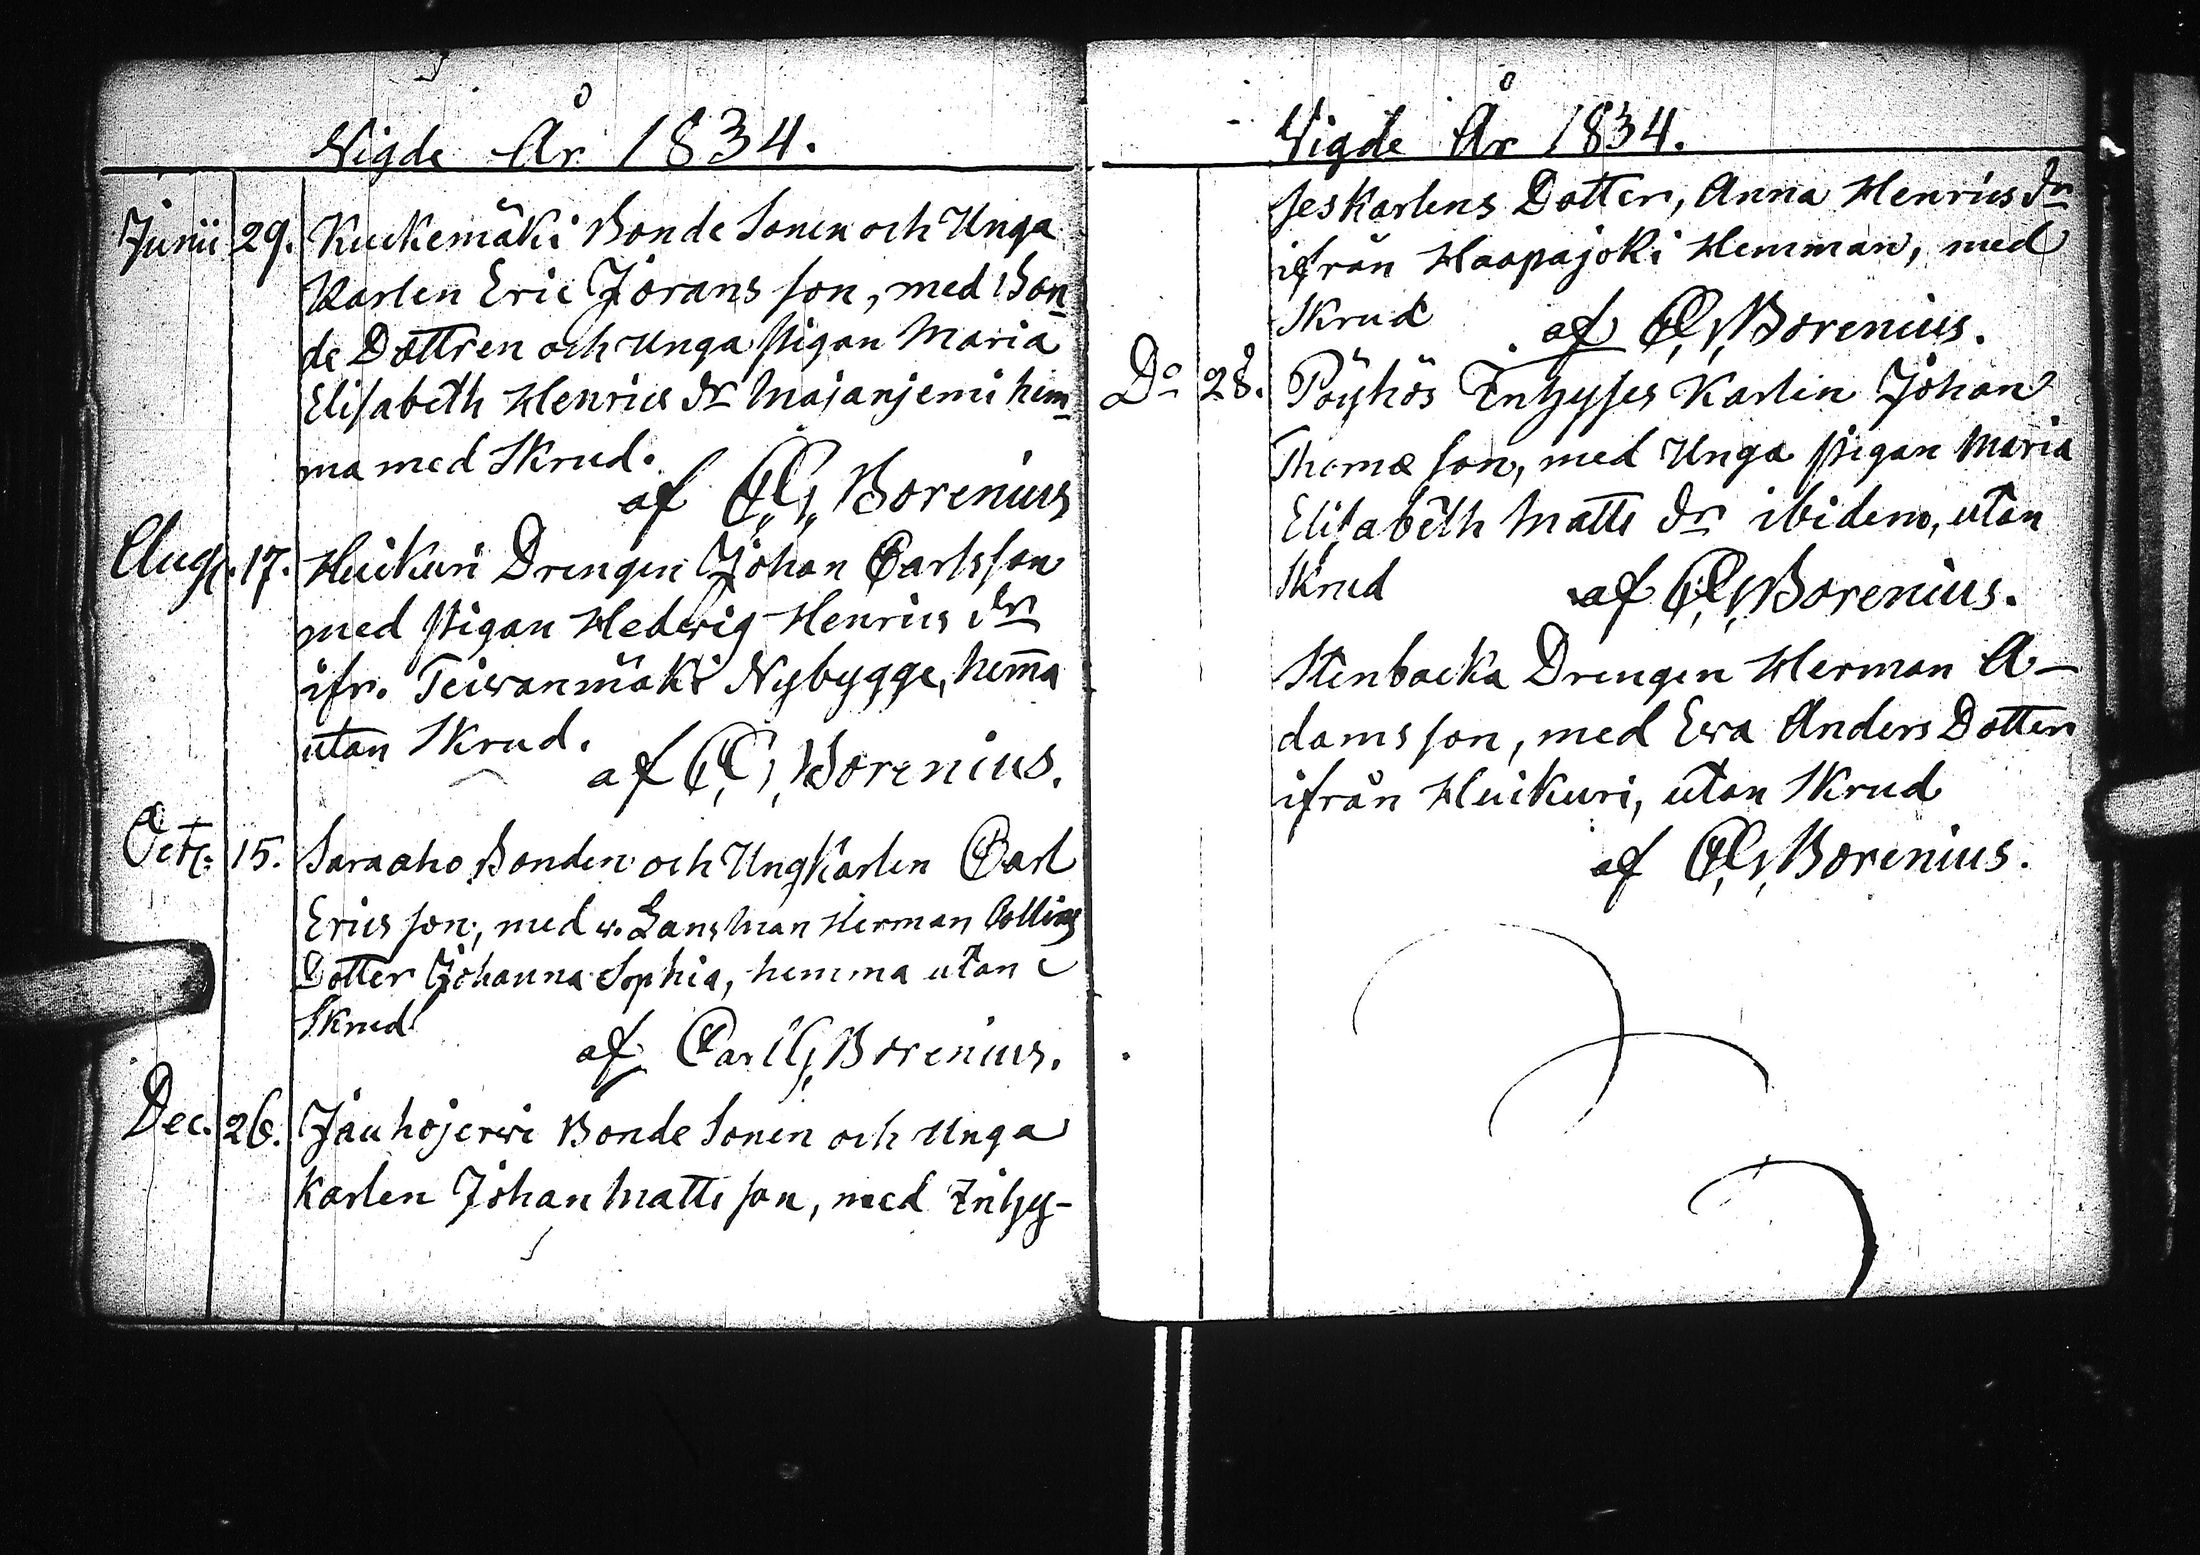 Vigde År 1834.
Junii 29. Kuckemäki Bonde Sonen och Unga
Karlen Eric Jörans son, med Bon=
de Dottren och unga pigan Maria
Elisabeth Henrics dr Majanjemi hem=
ma med Skrud.
af C. G. Borenius
Aug. 17. Huikuri Drengen Johan Carlsson
med pigan Hedwig Henrics dr
ifr. Teiwanmäki Nybygge, hem̅a
utan Skrud.
af C. G. Borenius.
Oct. 15. Saraaho Bonden och Ungkarlen Carl
Erics son, med v. Lansman Herman
Dotter Johanna Sophia, hemma utan
Skrud
af Carl G. Borenius.
Dec. 26. Jauhojerwi Bonde Sonen och Unga
Karlen Johan Matts son, med Inhy-
Vigde År 1834.
seskarlens Dotter, Anna Henrics dr
ifrån Haapajoki Hemman, med
Skrud af C. G. Borenius.
Do 28. Pöyhös Inhyses Karlen Johan
Thomæ son, med Unga pigan Maria
Elisabeth Matts dr ibidem, utan
Skrud af C. G. Borenius.
Stenbacka Drengen Herman A-
damsson, med Ewa Anders Dotter
ifrån Huikuri, utan Skrud
af C. G. Borenius.